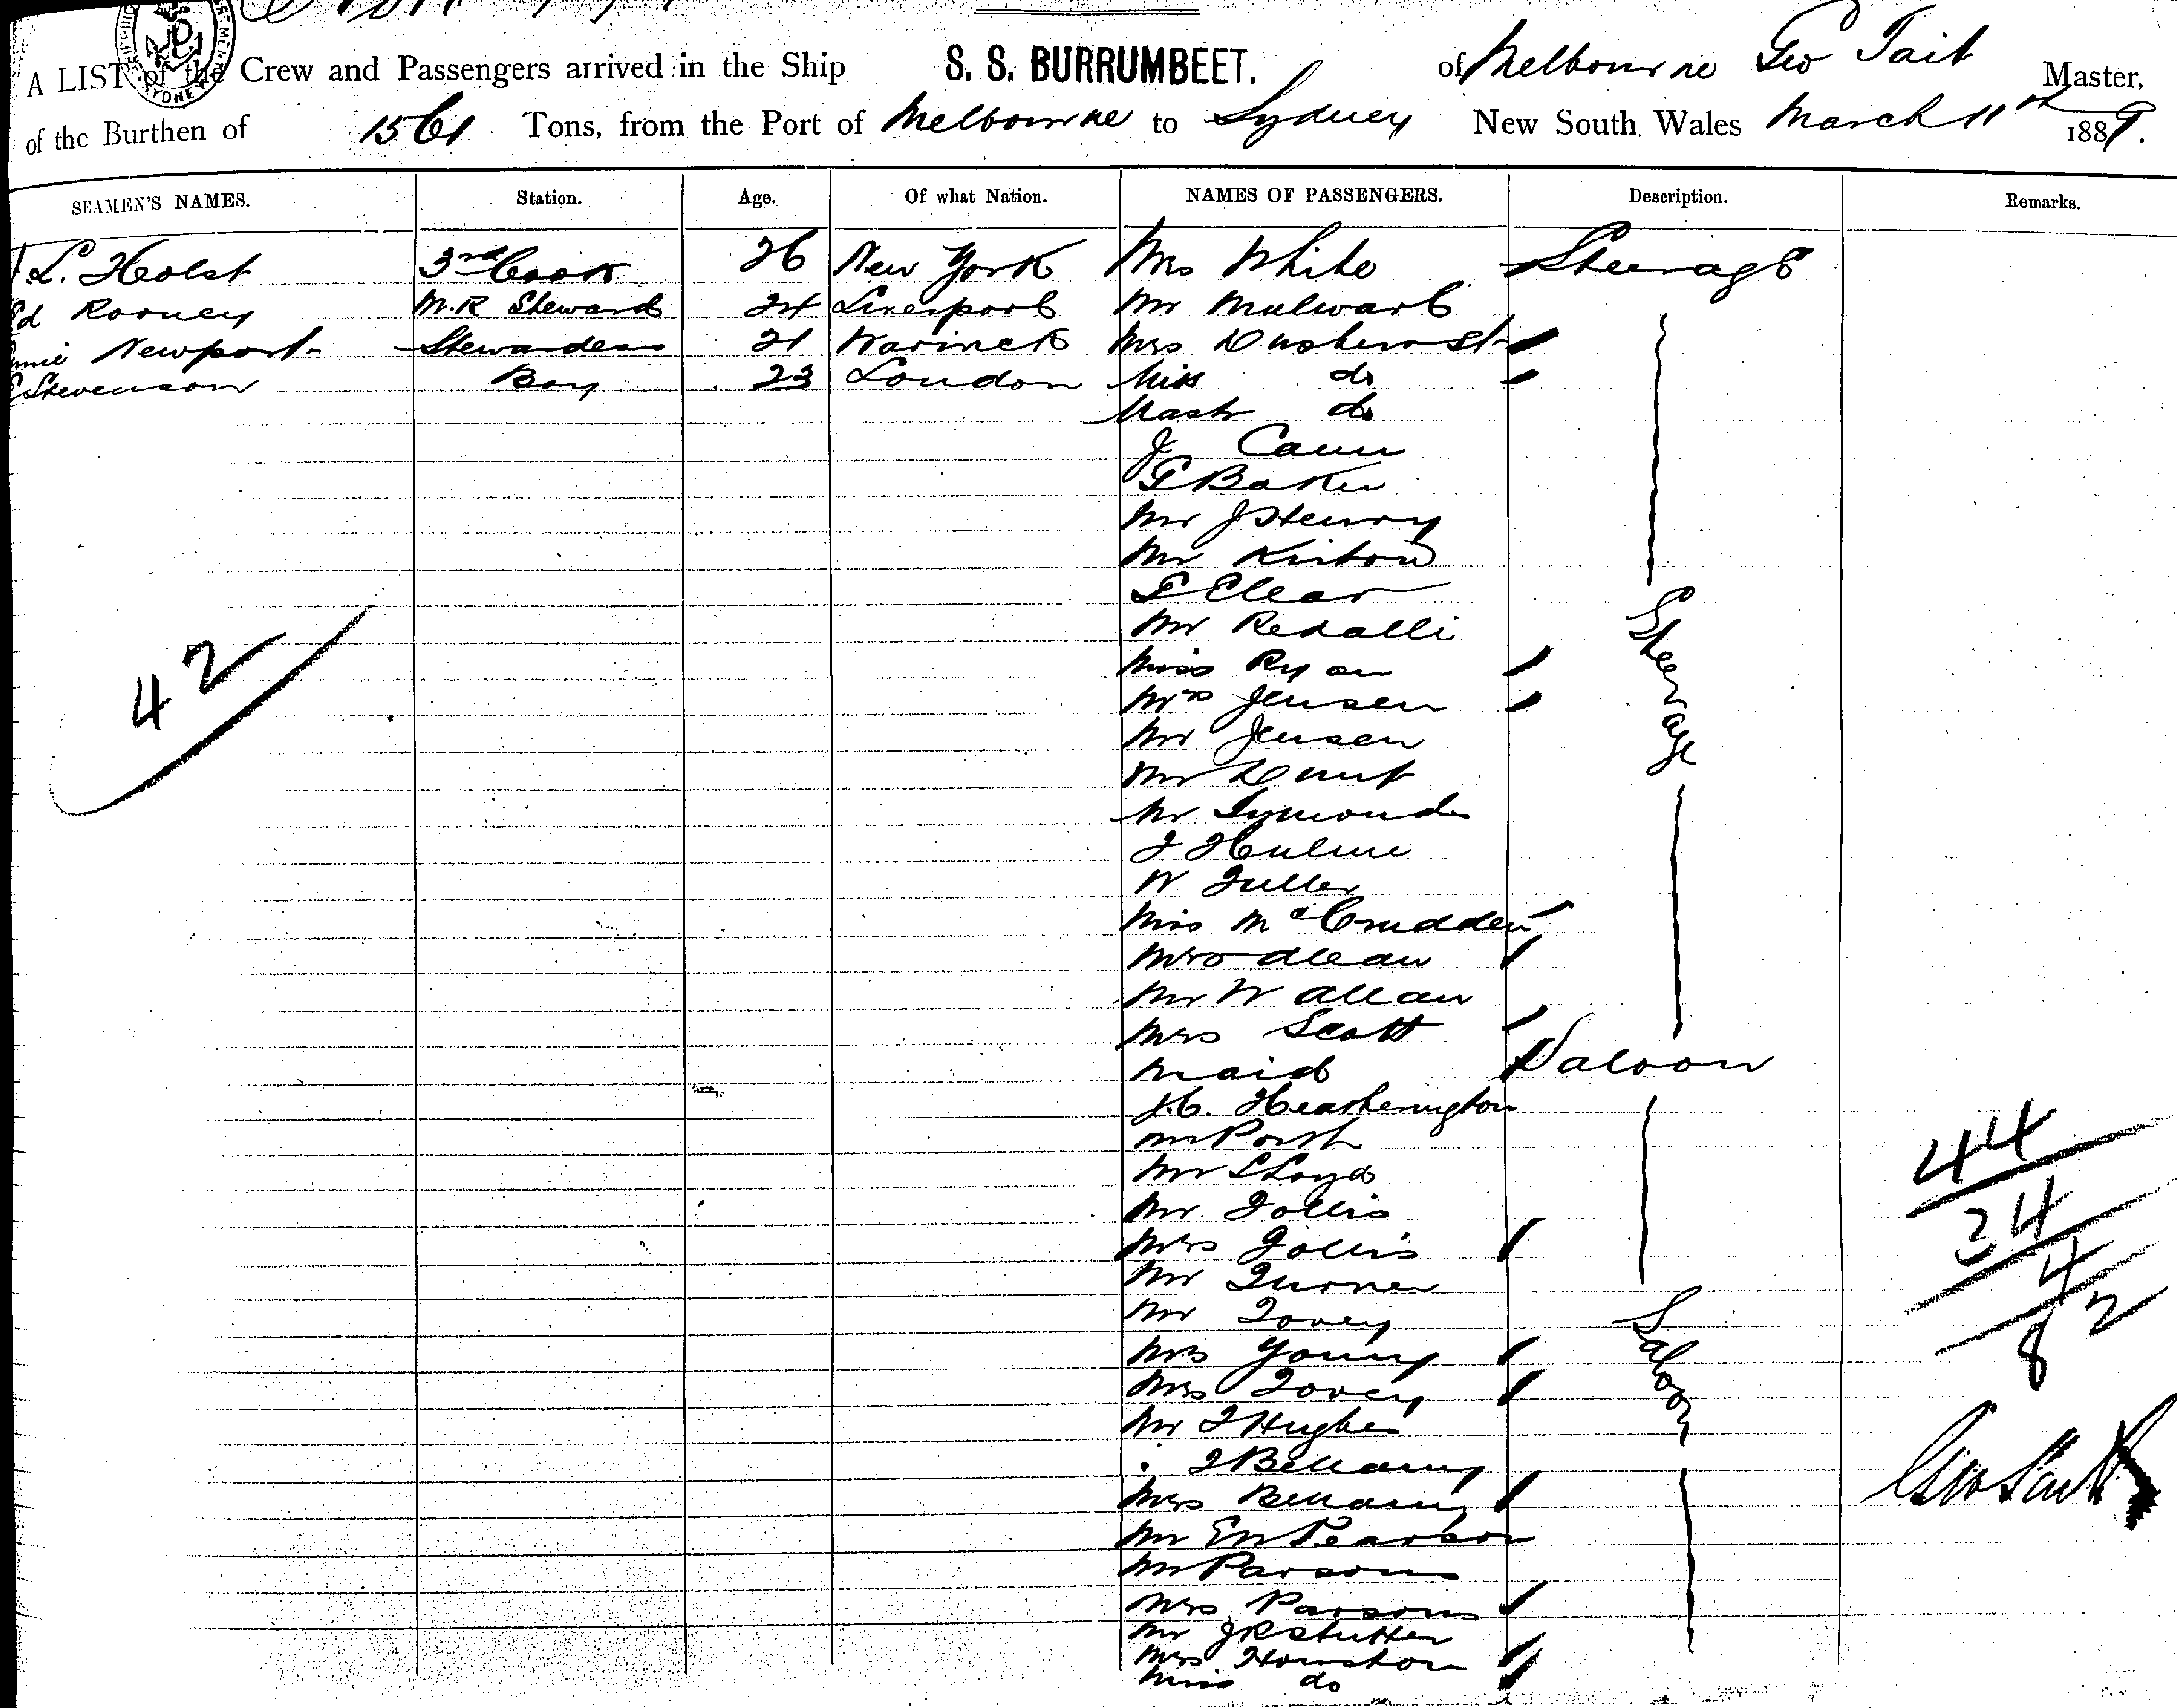 A LIST of the Crew and Passengers arrived in the Ship S. S. BURRUMBEET. of Melbourne Geo Tait Master,
of the Burthen of 1561 Tons, from the Port of Melbourne to Sydney New South Wales March 11th 1889.
SEAMEN'S NAMES. Station. Age. Of what Nation. NAMES OF PASSENGERS. Description. Remarks.
L. Holst 3rd Cook 26 New York Mrs White Steerage
Ed Rooney M.R Steward 24 Liverpool Mr
Newport Stewardess 21 Warwick Mrs
Stevenson Boy 23 London Miss do
Mastr do
J Cann
G Baker
Mr J Henry
Mr Kirton
Clear
Mr Redalli
Miss Ryan
Mrs Jensen
Mr Jensen
Mr
Mr Symonds
J Hulme
W Fuller
Miss McCrudden
Mrs Allan
Mr W Allan
Mrs Scott
Maid Saloon
J.C. Heatherington
Mr Porth
Mr Lloyd
Mr Follis
Mrs Follis
Mr Turner
Mr Tovey
Mrs Young
Mrs Tovey
Mr T Hughes
J Bellamy
Mrs Bellamy
Mr EW Pearson
Mr Parsons
Mrs Parsons
Mr J R Stutter
Mrs Howston
Miss do
Steerage
Saloon
42
44
34
4
82
Geo Tait